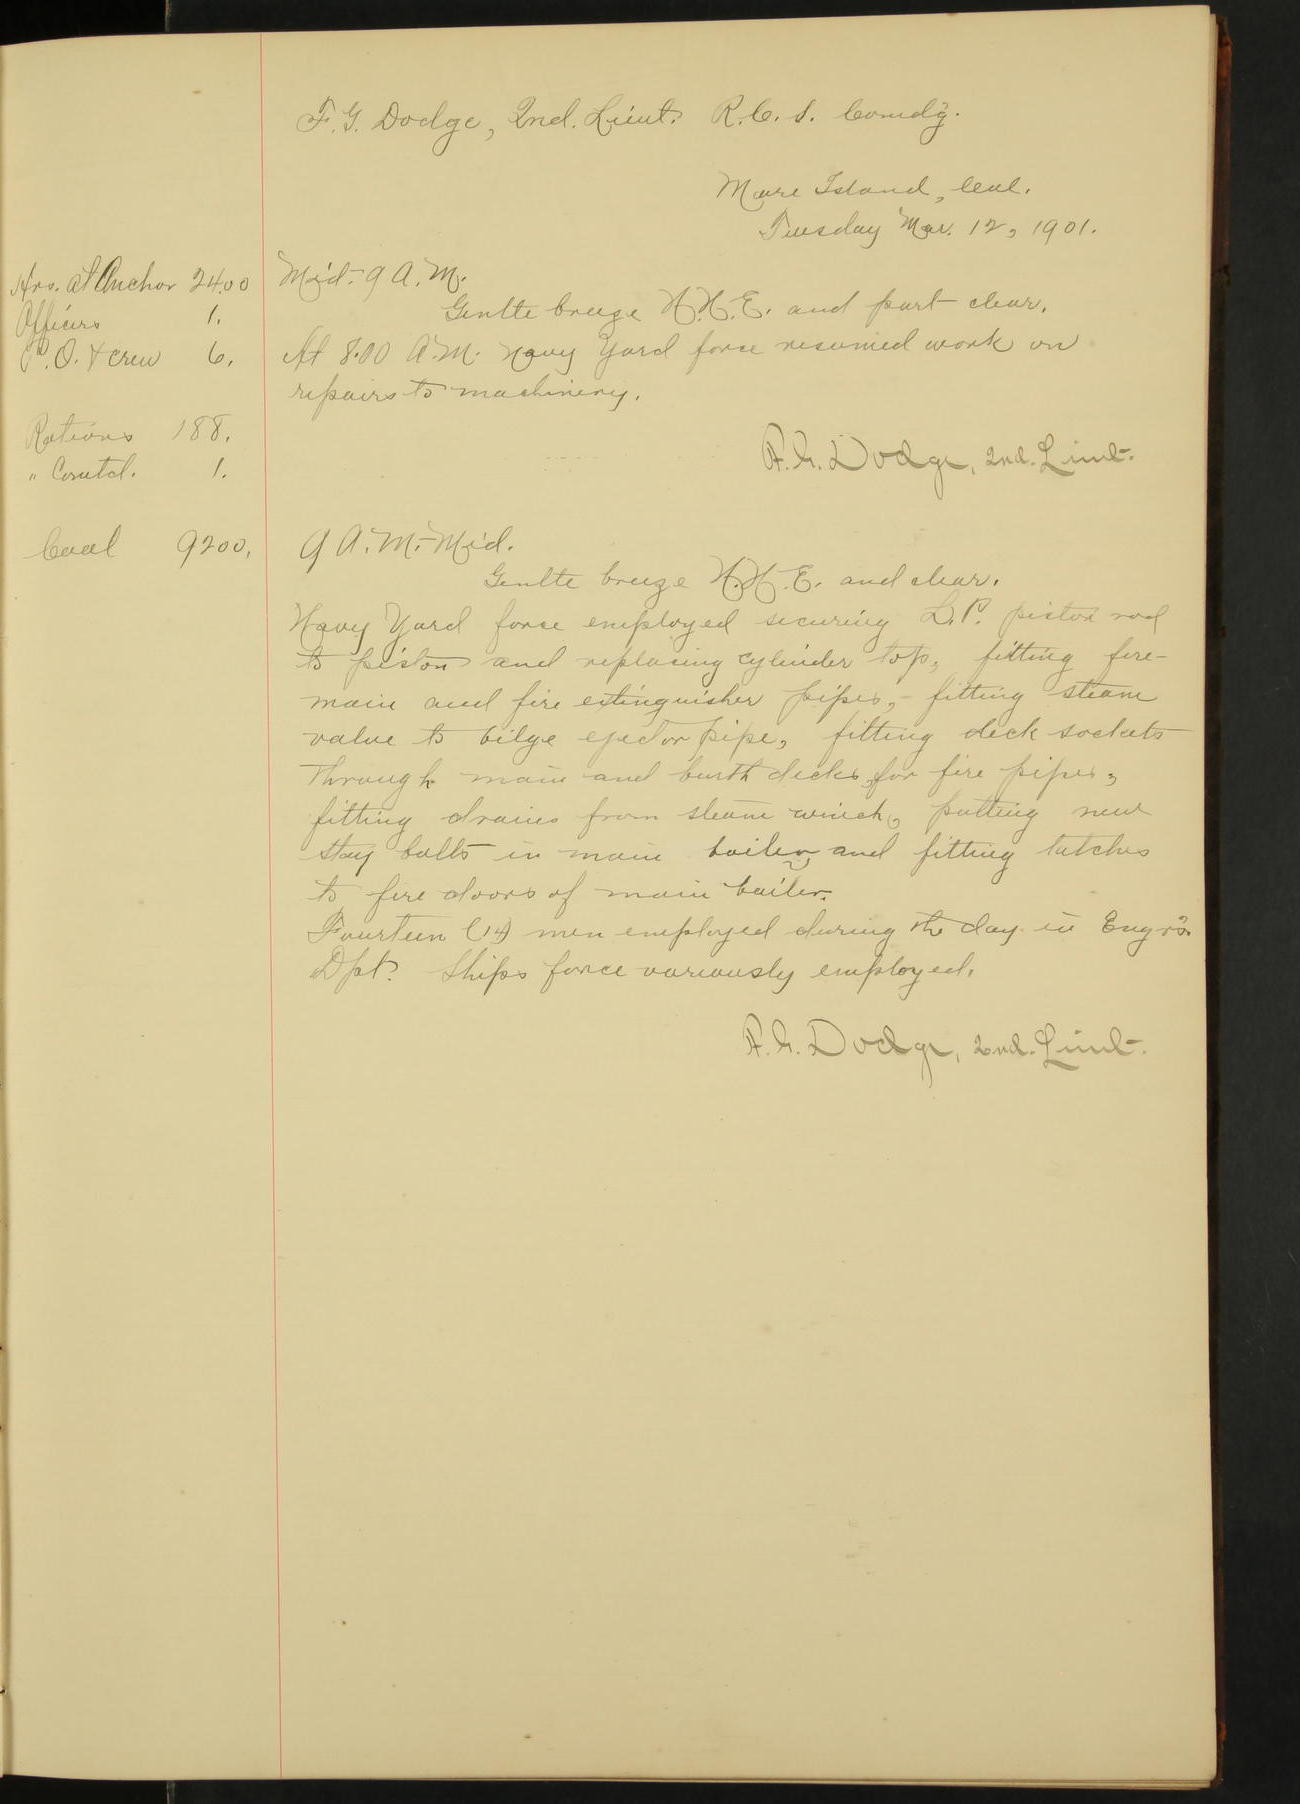 F. G. Dodge, 2nd. Lieut. R. C. S. Comd'g.
Mare Island, Cal.
Tuesday Mar. 12, 1901.
Hrs. at Anchor 24.00
Officers 1.
P. O. & crew 6.
Rations 188.
" Comtd. 1.
Coal 9200.
Mid - 9 A. M.
Gentle breeze N.N.E. and part clear.
At 8.00 A.M. Navy Yard force resumed work on
repairs to machinery.
F. G. Dodge, 2nd. Lieut.
9 A. M. - Mid.
Gentle breeze N.N.E. and clear.
Navy Yard force employed securing L. P. piston rod
to piston and replacing cylinder top, fitting fire-
main and fire extinguisher pipes, - fitting steam
valve to bilge ejector pipe, fitting deck sockets
through main and berth decks for fire pipes,
fitting drains from steam winch, putting new
stay bolts in main boiler, and fitting latches
to fire doors of main boiler.
Fourteen (14) men employed during the day in Engr's
Dpt. Ships force variously employed.
F. G. Dodge, 2nd. Lieut.